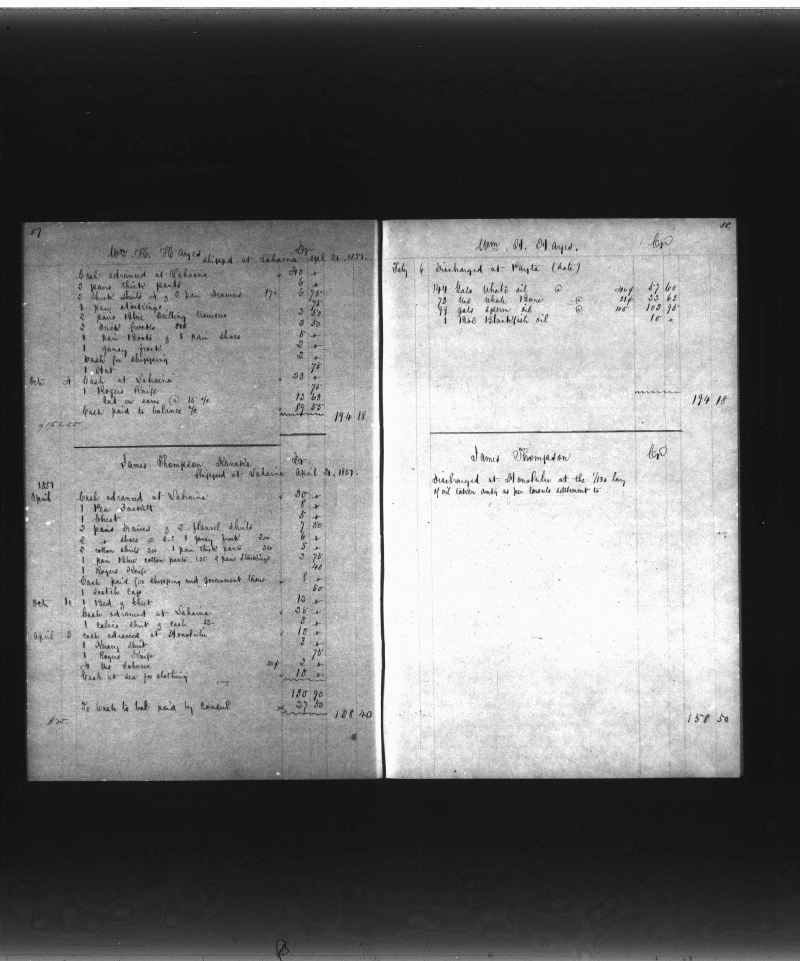 57
Wm. H. Hayes Dr
shipped at Lahaina Apl 21, 1857.
Cash advanced at Lahaina 40
2 pairs thick pants 6
2 thick shirts & 2 pair Drawers 6 75
1 pair stockings 75
pants Blue Drilling trowsers 2 50
2 Duck frocks 2 50
1 pair Boots & 1 pair shoes 5
1 gunsey frock 2
Cash for shipping 2
1 Hat 75
Oct Cash at Lahaina 23
1 Rogers Knife 75
Int on same @ 15 %
Cash paid to balance % 89 55
194 18
James Thompson Kanaka Dr
Shipped at Lahaina April 21, 1857.
1857
April Cash advanced at Lahaina 30
1 Pea Jackett 8
1 Chest 5
2 pairs Drawers & 2 flannel shirts 7 50
2 shoes 1 gunsey frock 200 6
2 cotton shirts 200 1 pair thick pants 5
1 pair Blue cotton pants 1.25 2 pair Stockings 2 75
1 Rogers Knife 40
Cash paid for Shipping and Government taxes 8
1 Scotch Cap 60
Oct 1 Bed & Chest 12
Cash advanced at Lahaina 25
1 calico shirt & cash
April 3 Cash advanced at Honolulu 10
1 Hickory Shirt
1 Rogers Knife 75
lbs Tobacco 2
Cash at sea for clothing 10
130 90
To Cash to bal paid by Consul 27 50
158 40
$25.
58
Wm. H. Hayes. Cr
Feby 6 Discharged at Payta (date)
144 Gals Whale oil @ 40¢ 57 60
73 lbs Whale Bone @
99 gals Sperm oil @ 105 103 95
1 Bbl Blackfish oil 10
194 18
James Thompson Cr
Discharged at Honolulu at the 1/130 lay
of oil taken as per Consuls settlement to
158 50